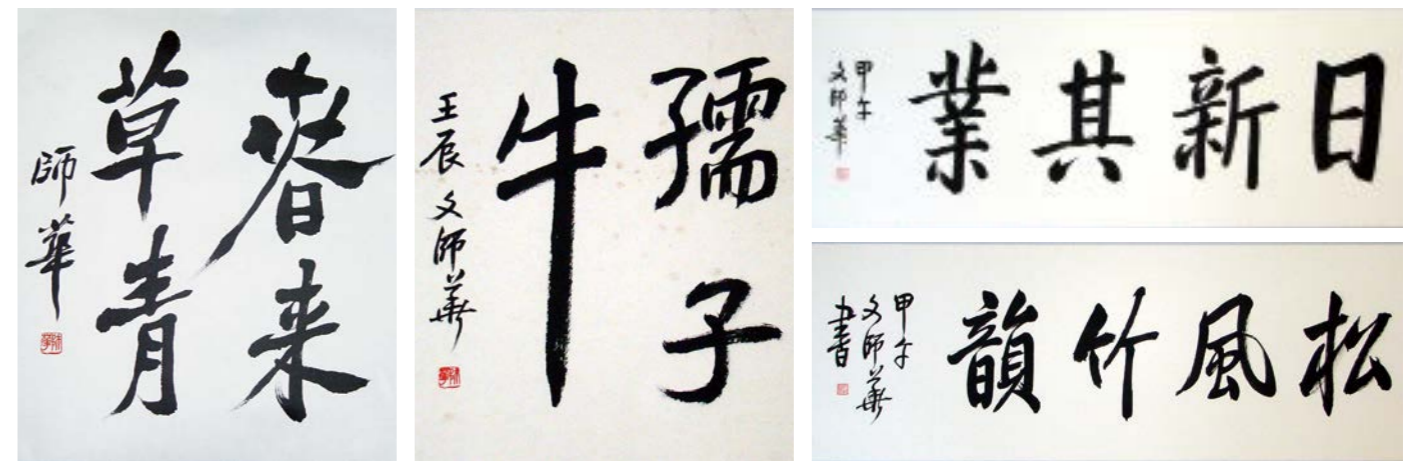 春来
草青
師華
孺子
牛
壬辰 文師華
日新其業
甲午
文師華
松風竹韻
甲午
文師華
書